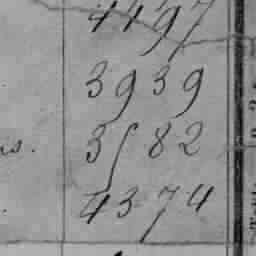 4497
3939
us. 3582
4374